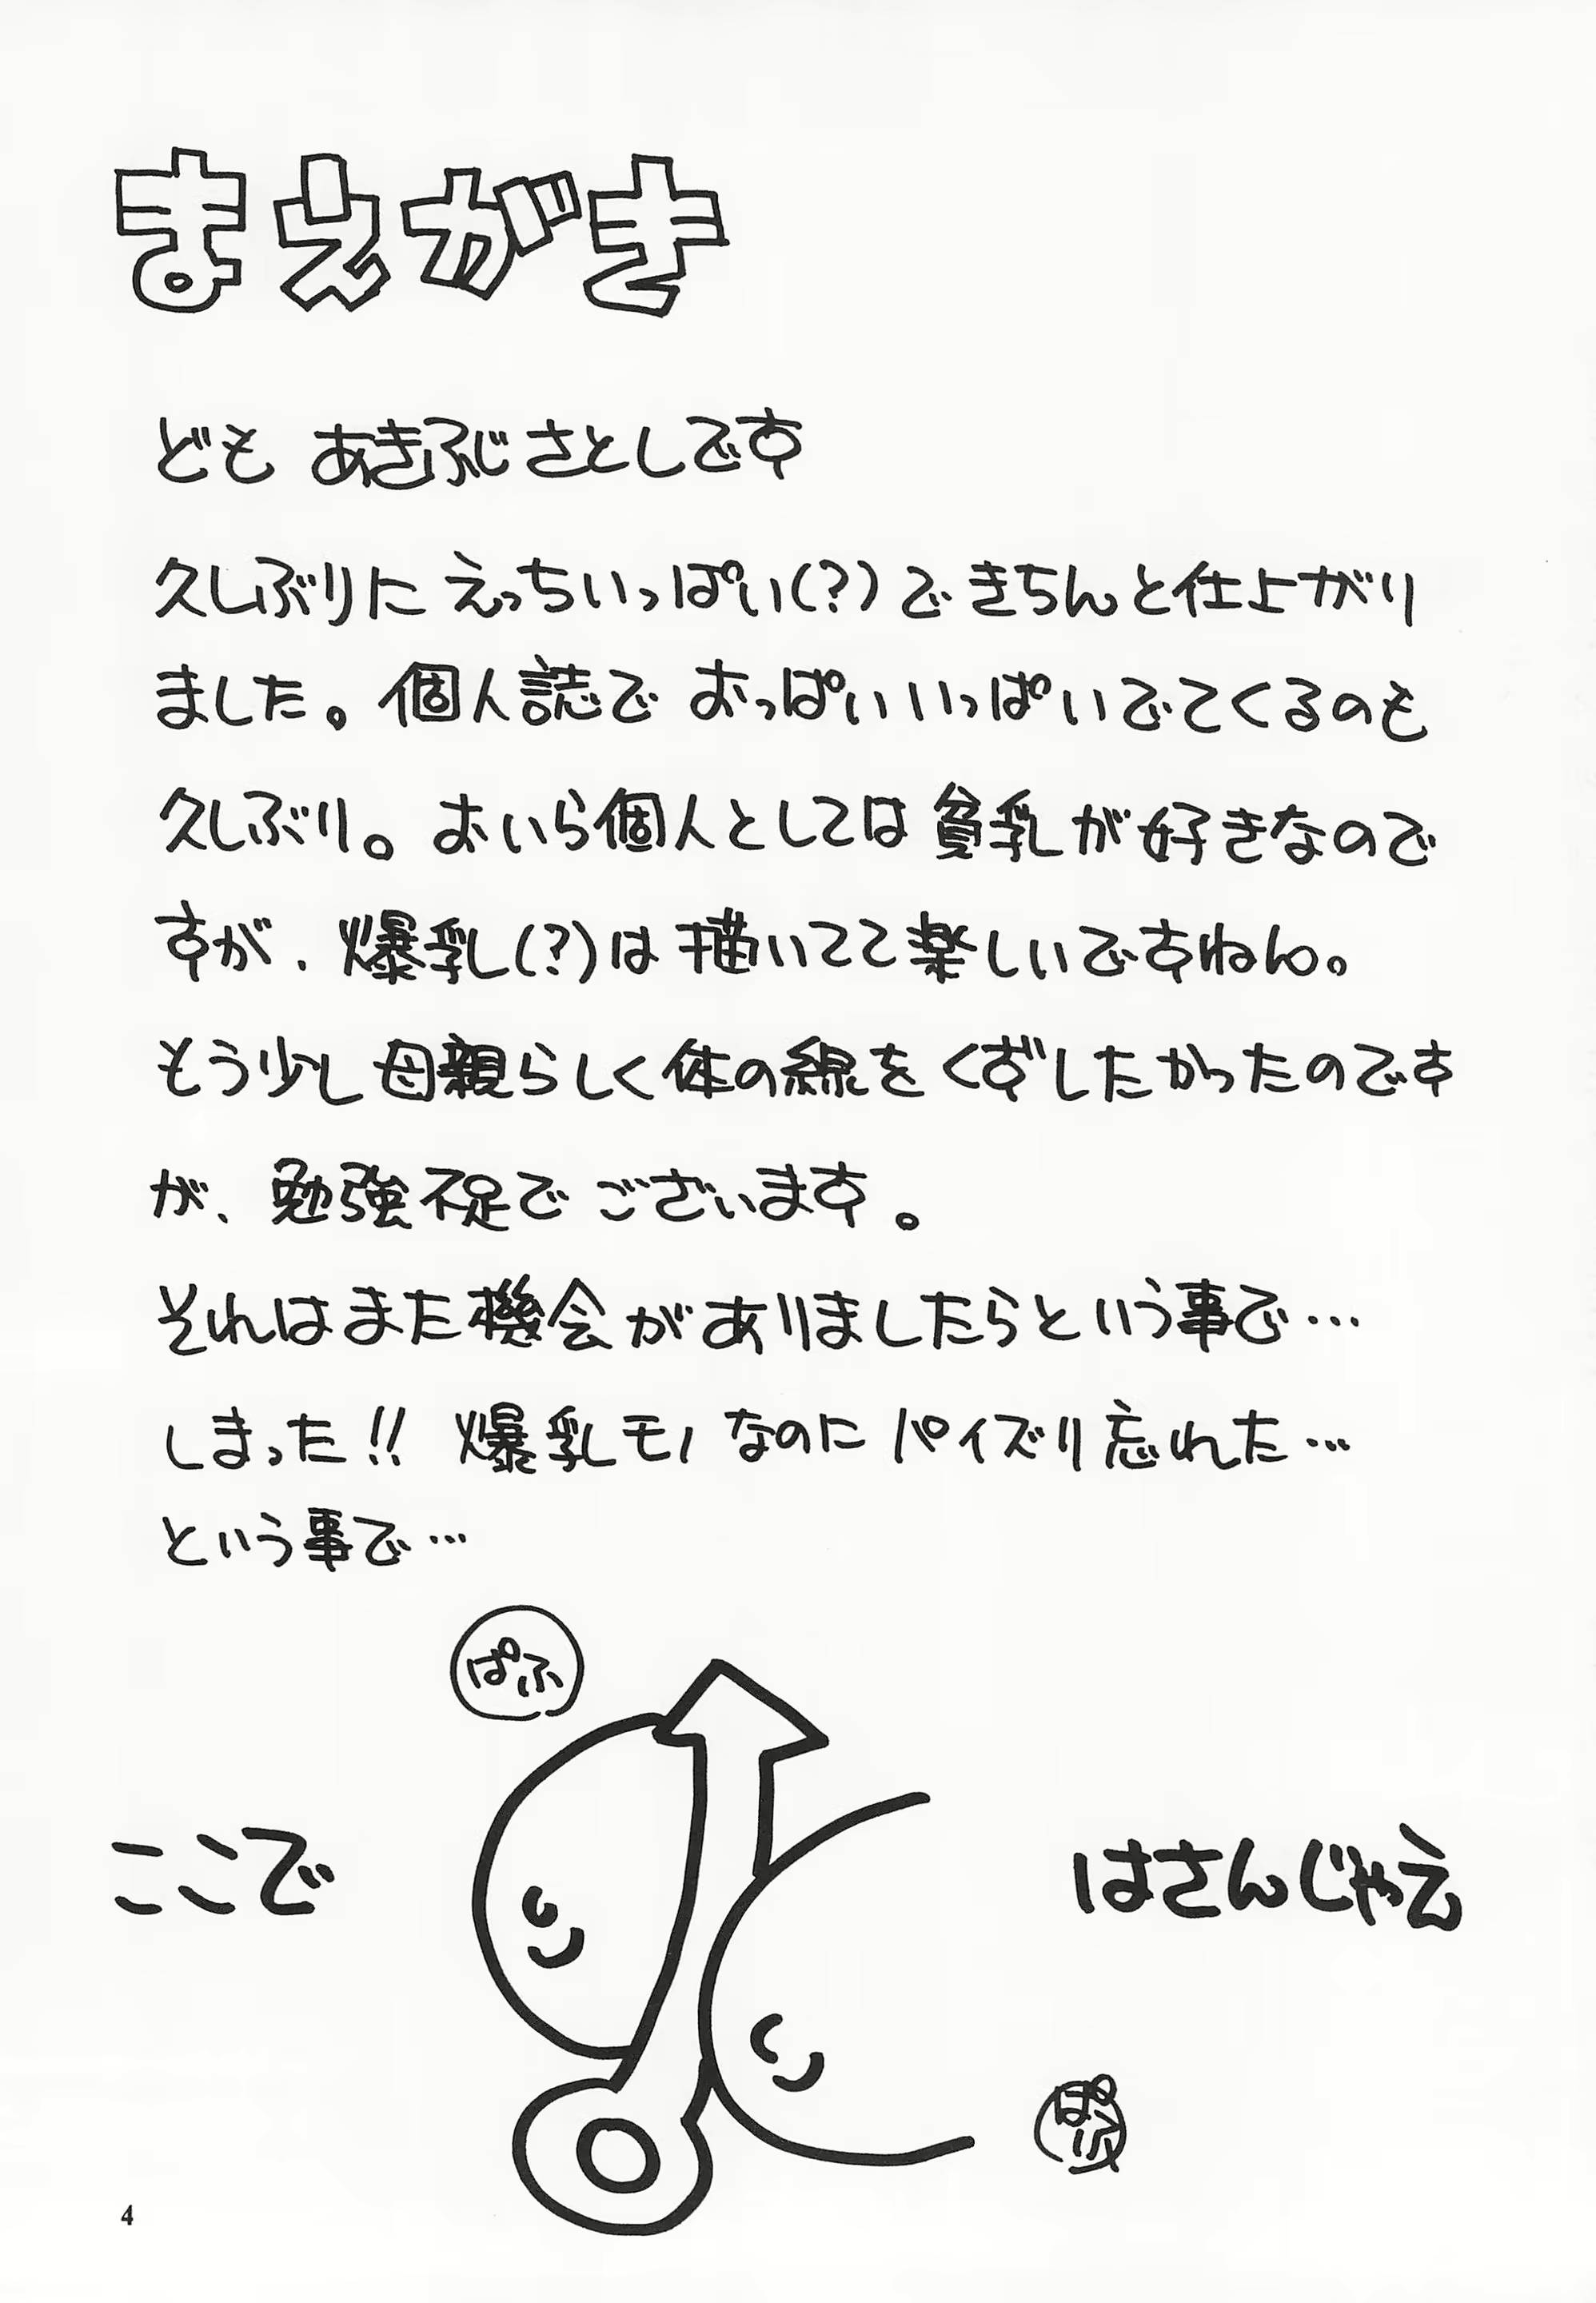 まえがき
ども あきふじさとしです
久しぶりに えっちいっぱい(?)で きちんと仕上がり
ました。個人誌で おっぱいいっぱいでてくるのも
久しぶり。おいら個人としては 貧乳が好きなので
すが、爆乳(?)は 描いてて楽しいですねん。
もう少し母親らしく体の線をくずしたかったのです
が、勉強不足で ございます。
それはまた機会がありましたらという事で…
しまった!! 爆乳モノなのに パイズリ忘れた…
という事で…
ぱふ
ここで
はさんじゃえ
ぱふ
4